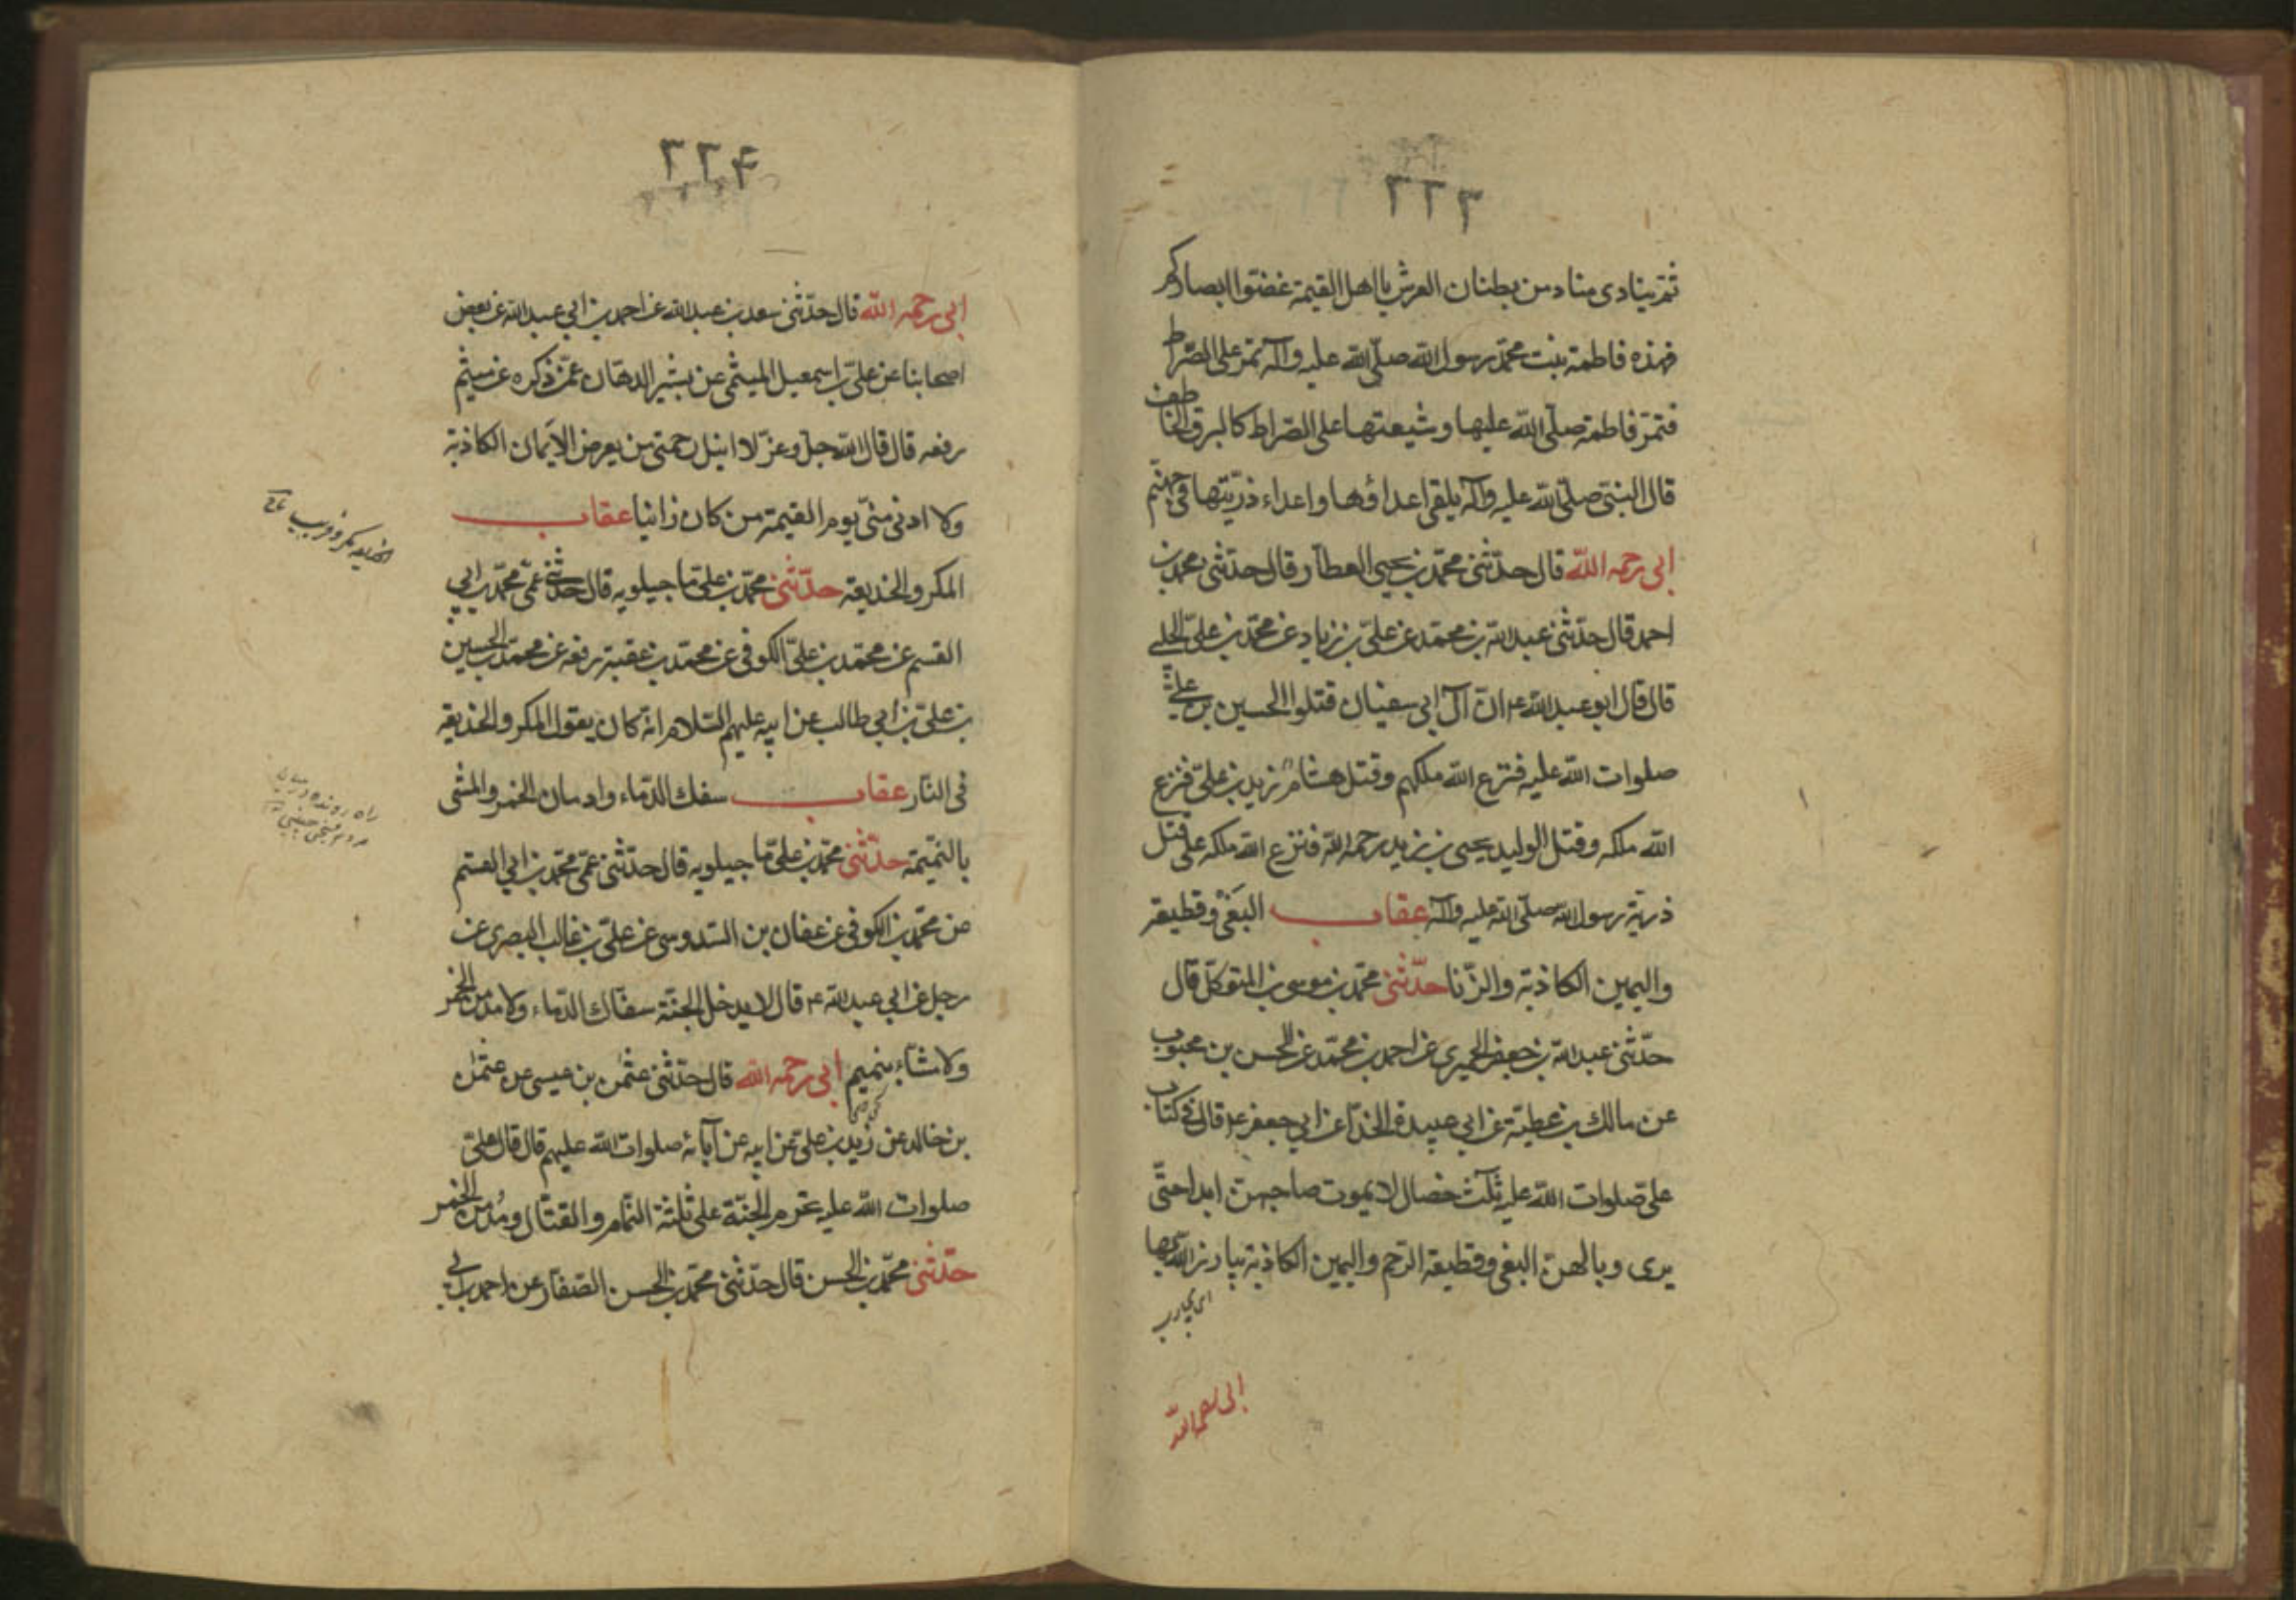 ٢٢٣
ثم ينادى مناد من بطنان العرش يا اهل القيمة غضوا ابصاركم
فهذه فاطمة بنت محمد رسول الله صلّى الله عليه وآله تمرّ على الصّراط
فتمرّ فاطمة صلّى الله عليها وشيعتها على الصّراط كالبرق الخاطف
قال النبىّ صلّى الله عليه وآله يلقى اعداؤها واعداء ذرّيتها فى جهنّم
ابى رحمه الله قال حدّثنى محمّد بن يحيى العطّار قال حدّثنى محمد بن
احمد قال حدّثنى عبد الله بن محمّد عن علىّ بن زياد عن محمّد بن علىّ الحلبى
قال قال ابو عبد الله ع انّ آل ابى سفيان قتلوا الحسين بن علىّ
صلوات الله عليه فنزع الله ملكهم وقتل هشام زيد بن علىّ فنزع
الله ملكه وقتل الوليد يحيى بن زيد رحمه الله فنزع الله ملكه على قتل
ذرية رسول الله صلّى الله عليه وآله عقاب البغى وقطيعة
واليمين الكاذبة والزّنا حدّثنى محمّد بن موسى بن المتوكّل قال
حدّثنى عبد الله بن جعفر الحميرى عن احمد بن محمّد عن الحسن بن محبوب
عن مالك بن عطيّة عن ابى عبيدة الحذّاء عن ابى جعفر ع قال فى كتاب
علىّ صلوات الله عليه ثلث خصال لا يموت صاحبهنّ ابدا حتّى
يرى وبالهنّ البغى وقطيعة الرّحم واليمين الكاذبة يبارز الله بها
اى يحارب
ابى رحمه الله
٢٢۴
ابى رحمه الله قال حدّثنى سعد بن عبد الله عن احمد بن ابى عبد الله عن بعض
اصحابنا عن علىّ بن اسمعيل الميثمى عن بشير الدهّان عمّن ذكره عن ميثم
رفعه قال قال الله جلّ وعزّ لا انيل رحمتى من يعرض الايمان الكاذبة
ولا ادنى منّى يوم القيمة من كان زانيا عقاب
المكر والخديعة حدّثنى محمّد بن علىّ ماجيلويه قال حدّثنى عمّى محمّد بن ابى
القسم عن محمّد بن علىّ الكوفى عن محمّد بن عقبة رفعه عن محمّد بن الحسين
بن علىّ بن ابى طالب عن ابيه عليهم السّلام انّه كان يقول المكر والخديعة
فى النّار عقاب سفك الدّماء وادمان الخمر والمشى
بالنّميمة حدّثنى محمّد بن علىّ ماجيلويه قال حدّثنى عمّى محمّد بن ابى القسم
عن محمّد بن الكوفى عن عفان بن السّدوسى عن علىّ بن غالب البصرى عن
رجل عن ابى عبد الله ع قال لا يدخل الجنّة سفّاك الدّماء ولا مدمن الخمر
ولا مشّاء بنميم ابى رحمه الله قال حدّثنى عثمن بن عيسى عن عثمن
بن خالد عن زيد بن علىّ عن ابيه عن آبائه صلوات الله عليهم قال قال علىّ
صلوات الله عليه تحرم الجنّة على ثلثة النّمام والقتّال ومُدمن الخمر
حدّثنى محمّد بن الحسن قال حدّثنى محمّد بن الحسن الصّفّار عن احمد بن ابى
الخديعة مكر وفريب
راه رونده در ميان